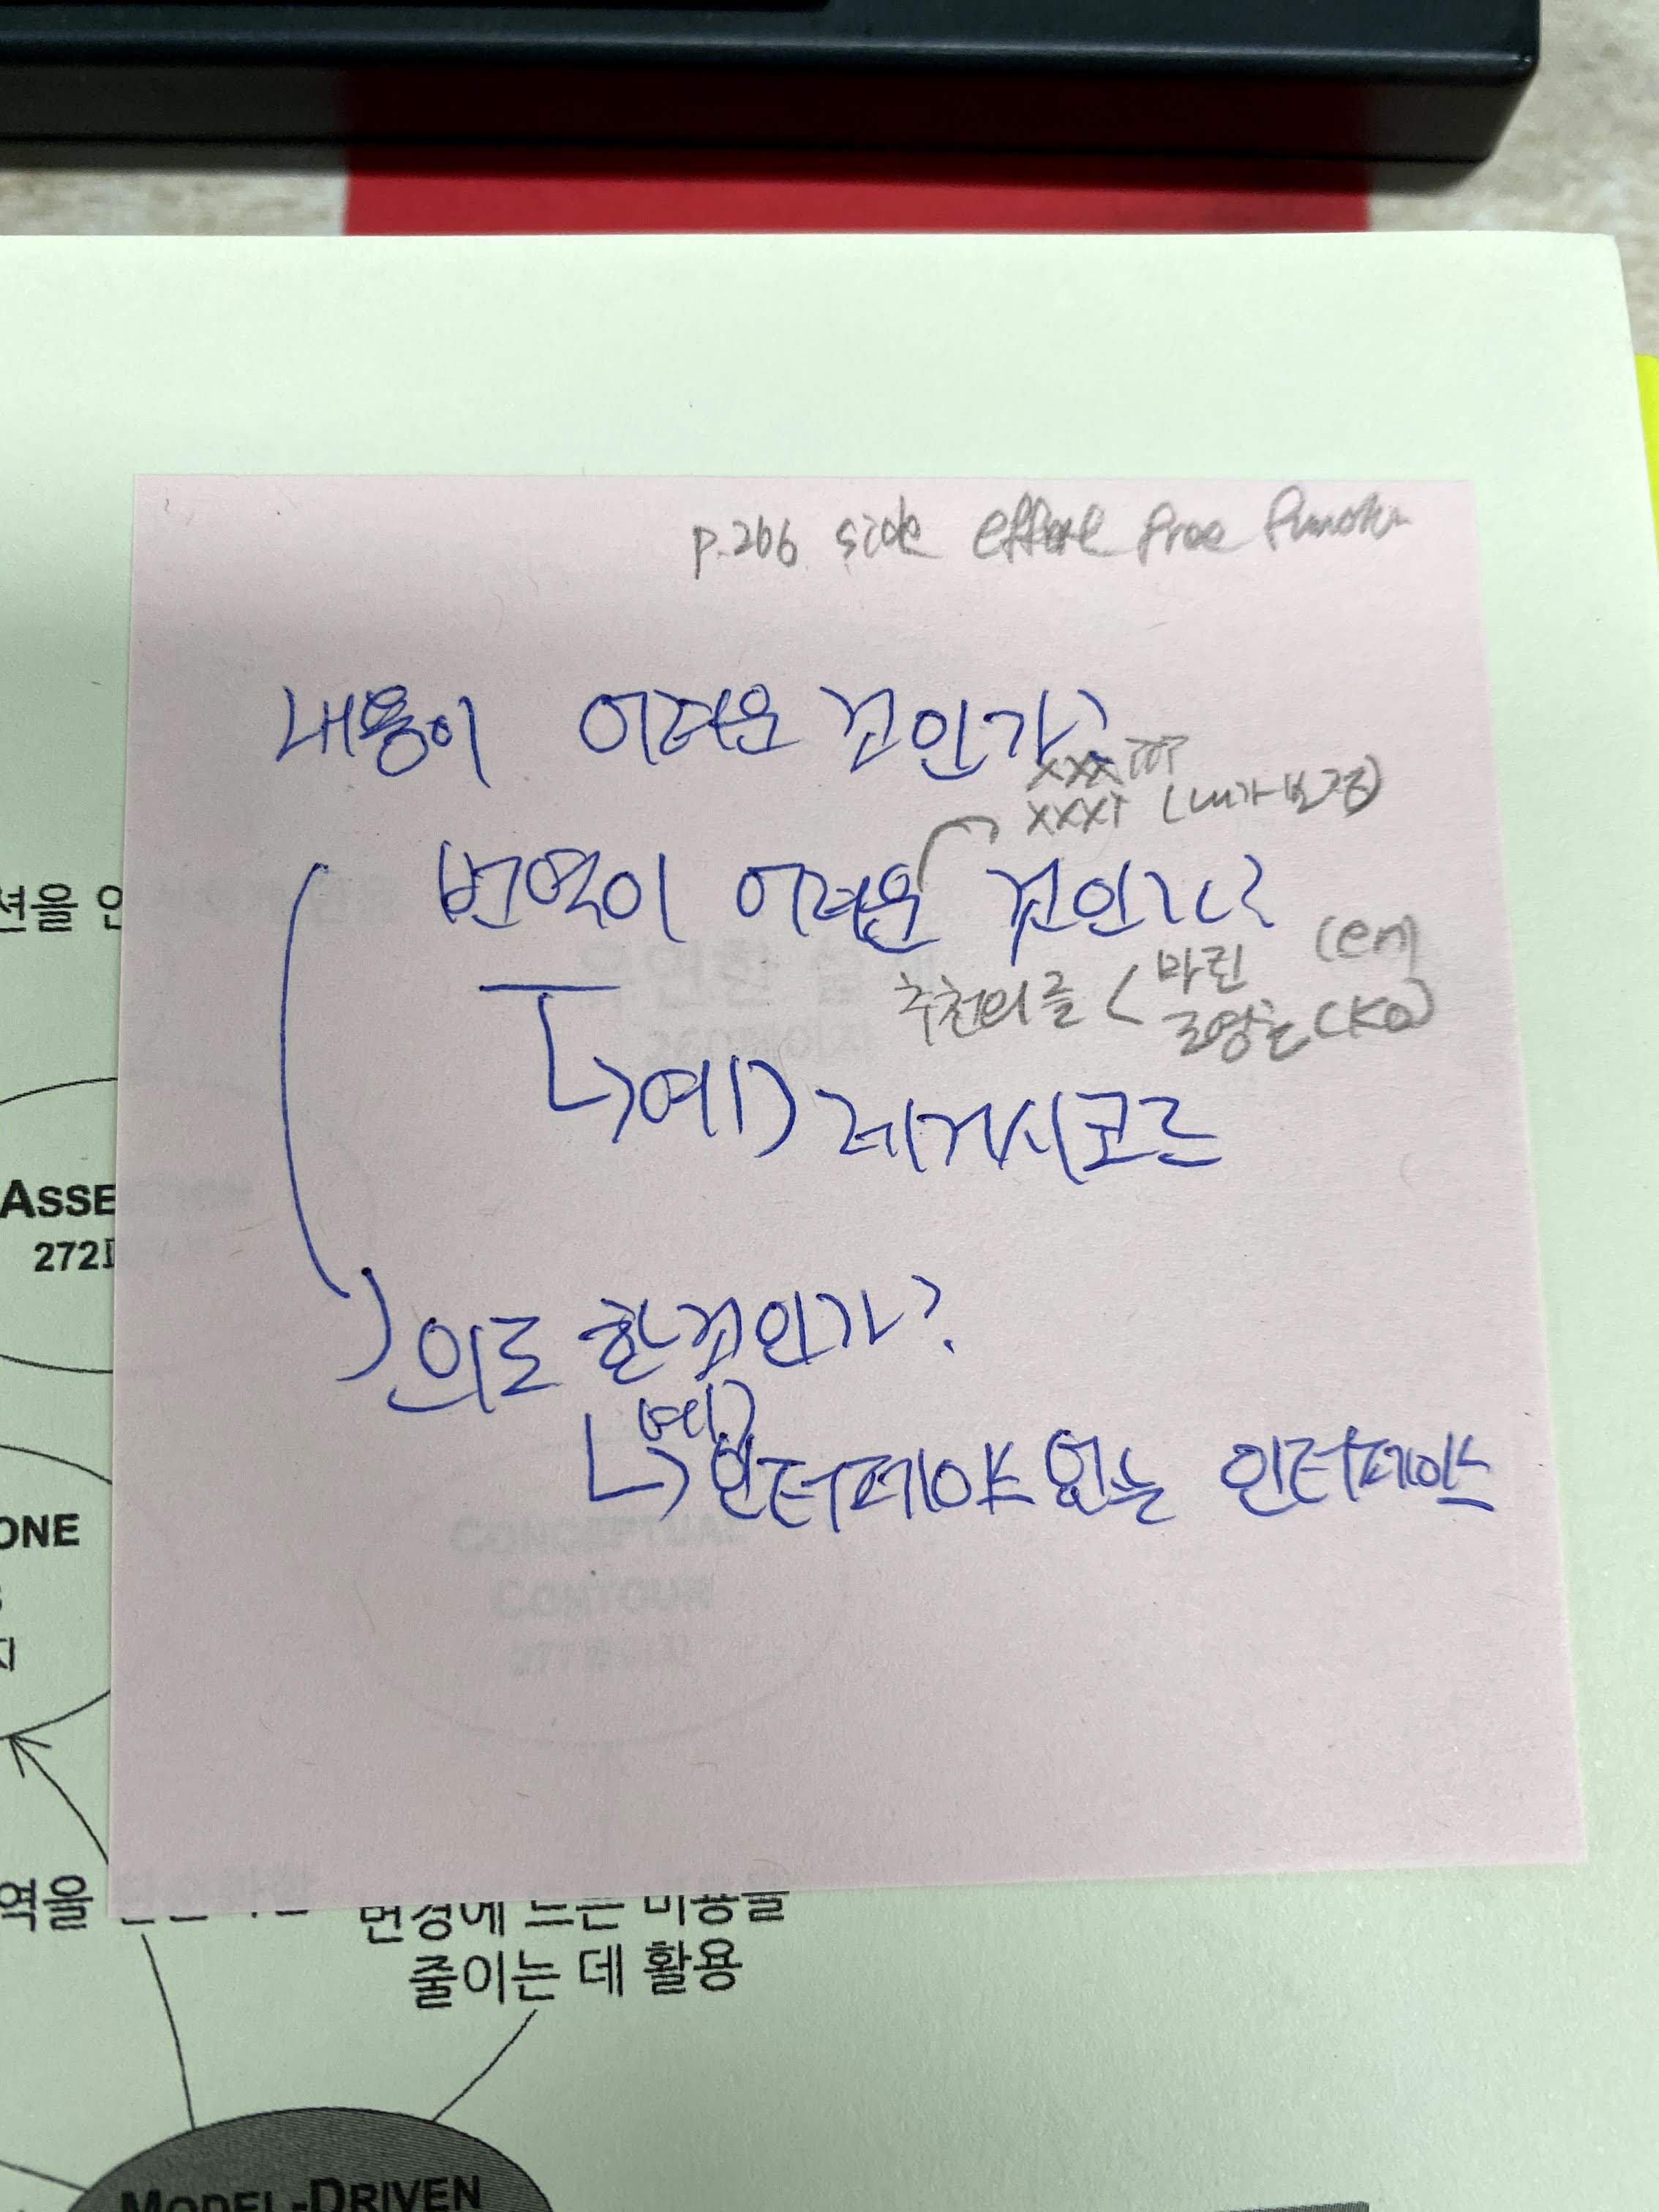 p.266 side effect free function
내용이 어려운 것인가?
(내가 보정)
번역이 어려운 것인가?
추천의 글 < 마틴 (en)
(KO)
예) 레거시코드
의도한것인가?
예)
인터페이스 없는 인터페이스
션을 인
ASSE
272
ONE
역을
변경에 드는 비용을
줄이는 데 활용
CONCEPTUAL
CONTOUR
277페이지
MODEL-DRIVEN